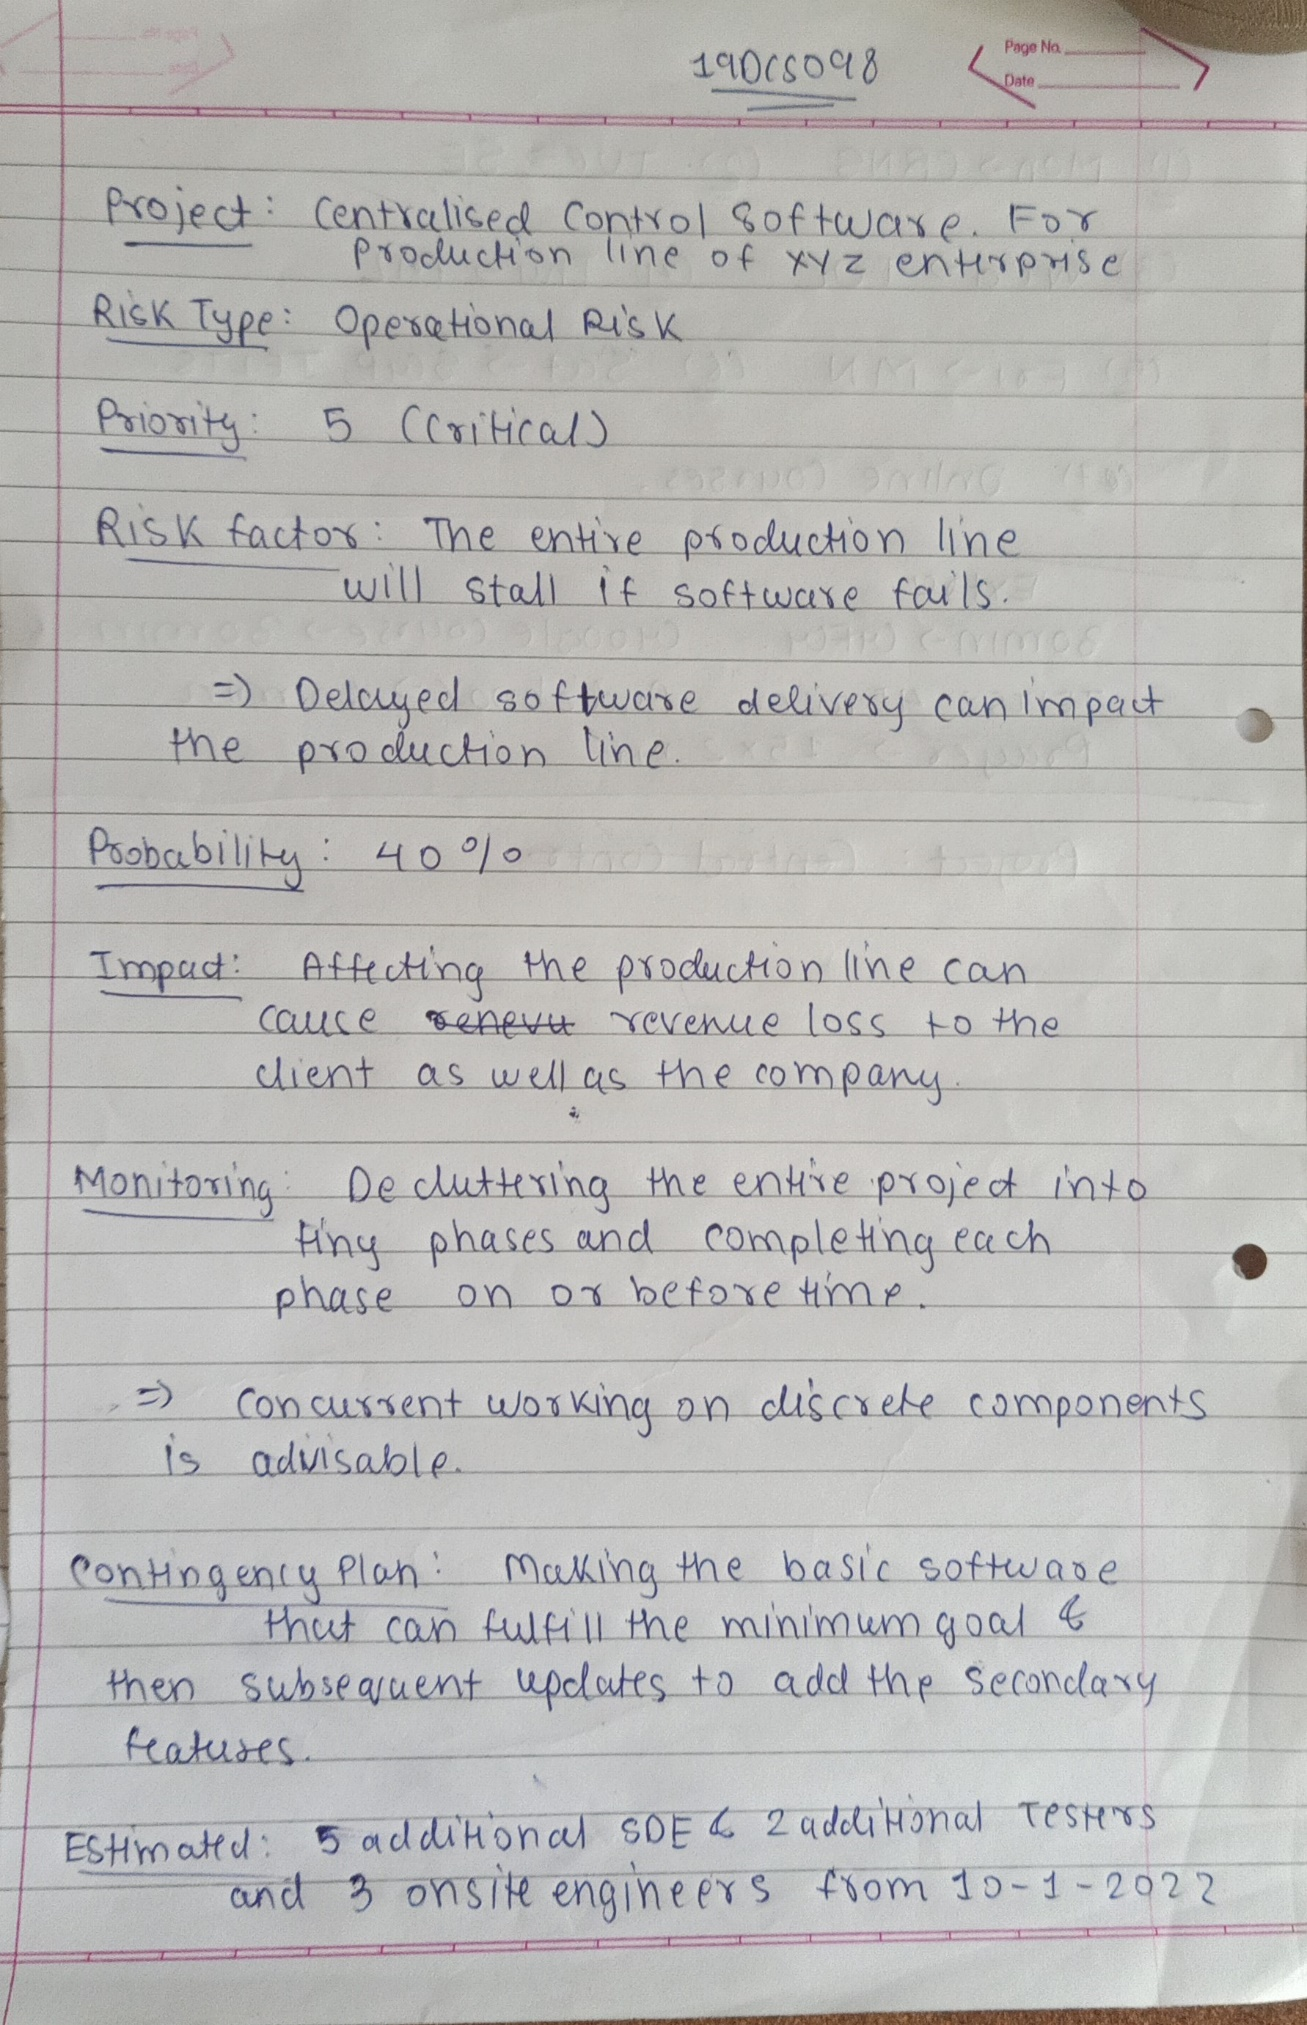 19DCS098
Page No.
Date
Project: Centralised Control Software. For
Production line of XYZ enterprise
Risk Type: Operational Risk
Priority: 5 (Critical)
Risk factor: The entire production line
will stall if software fails.
=> Delayed software delivery can impact
the production line.
Probability: 40%
Impact: Affecting the production line can
cause renevu revenue loss to the
client as well as the company.
Monitoring: Decluttering the entire project into
tiny phases and completing each
phase on or before time.
=> Concurrent working on discrete components
is advisable.
Contingency Plan: Making the basic software
that can fulfill the minimum goal &
then subsequent updates to add the secondary
features.
Estimated: 5 additional SDE & 2 additional Testers
and 3 onsite engineers from 10-1-2022